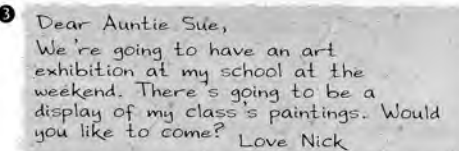 3
Dear Auntie Sue,
We're going to have an art
exhibition at my school at the
weekend. There's going to be a
display of my class's paintings. Would
you like to come?
Love Nick